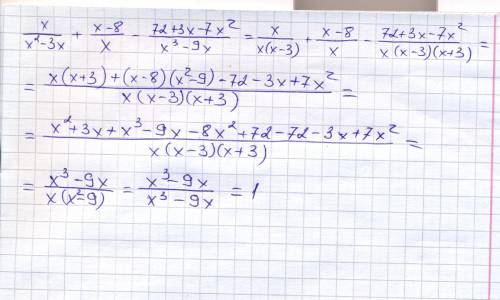 x/(x²-3x) + (x-8)/x - (72+3x-7x²)/(x³-9x) = x/(x(x-3)) + (x-8)/x - (72+3x-7x²)/(x(x-3)(x+3)) =
= (x(x+3)+(x-8)(x²-9)-72-3x+7x²)/(x(x-3)(x+3)) =
= (x²+3x+x³-9x-8x²+72-72-3x+7x²)/(x(x-3)(x+3)) =
= (x³-9x)/(x(x²-9)) = (x³-9x)/(x³-9x) = 1